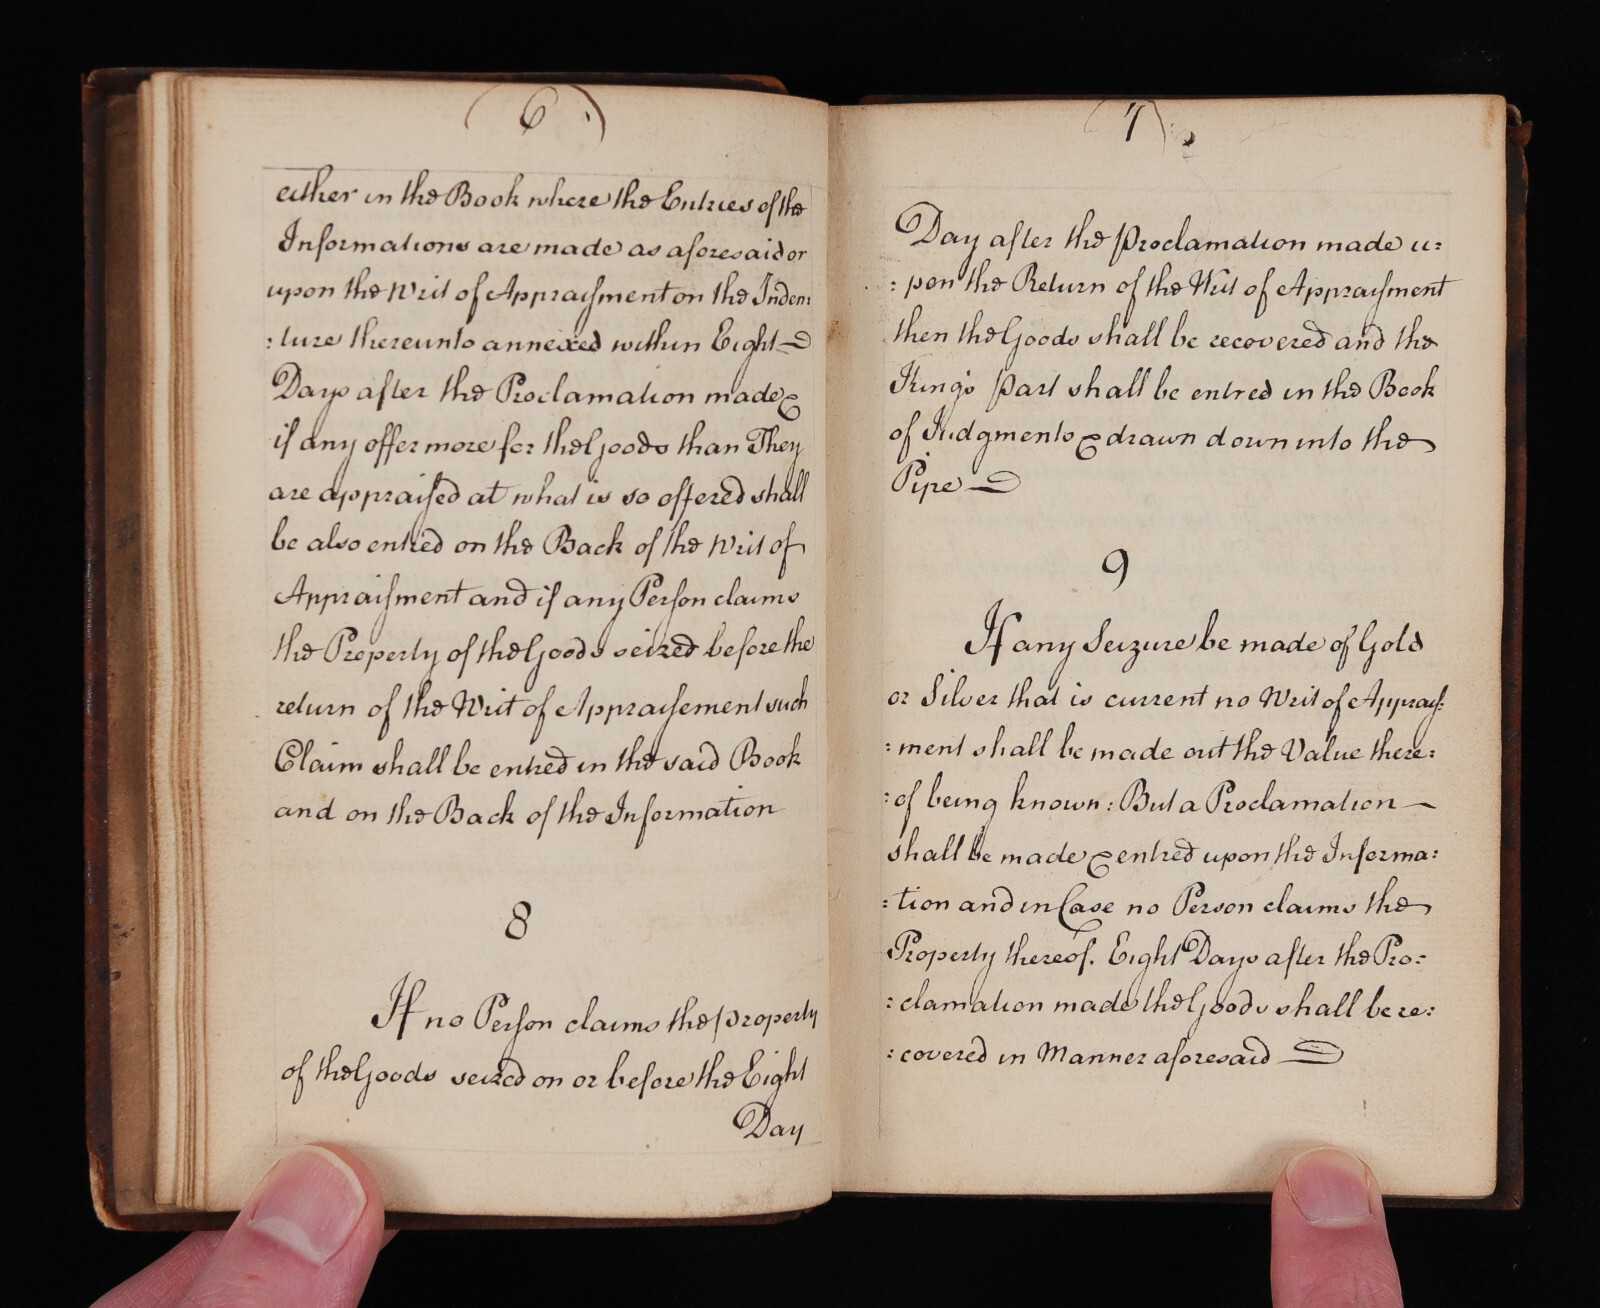 ( 6 )
either in the Book where the Entries of the
Informations are made as aforesaid or
upon the Writ of Appraisment on the Inden:
:ture thereunto annexed within Eight
Days after the Proclamation made &
if any offer more for the Goods than They
are appraised at what is so offered shall
be also entred on the Back of the Writ of
Appraisment and if any Person claims
the Property of the Goods seized before the
return of the Writ of Appraisement such
Claim shall be entred in the said Book
and on the Back of the Information
8
If no Person claims the property
of the Goods seized on or before the Eight
Day
( 7 )
Day after the Proclamation made u:
:pon the Return of the Writ of Appraisment
then the Goods shall be recovered and the
King's part shall be entred in the Book
of Judgments & drawn down into the
Pipe
9
If any Seizure be made of Gold
or Silver that is current no Writ of Apprais:
:ment shall be made out the Value there:
:of being known: But a Proclamation
shall be made & entred upon the Informa:
:tion and in Case no Person claims the
Property thereof. Eight Days after the Pro:
:clamation made the Goods shall be re:
:covered in Manner aforesaid